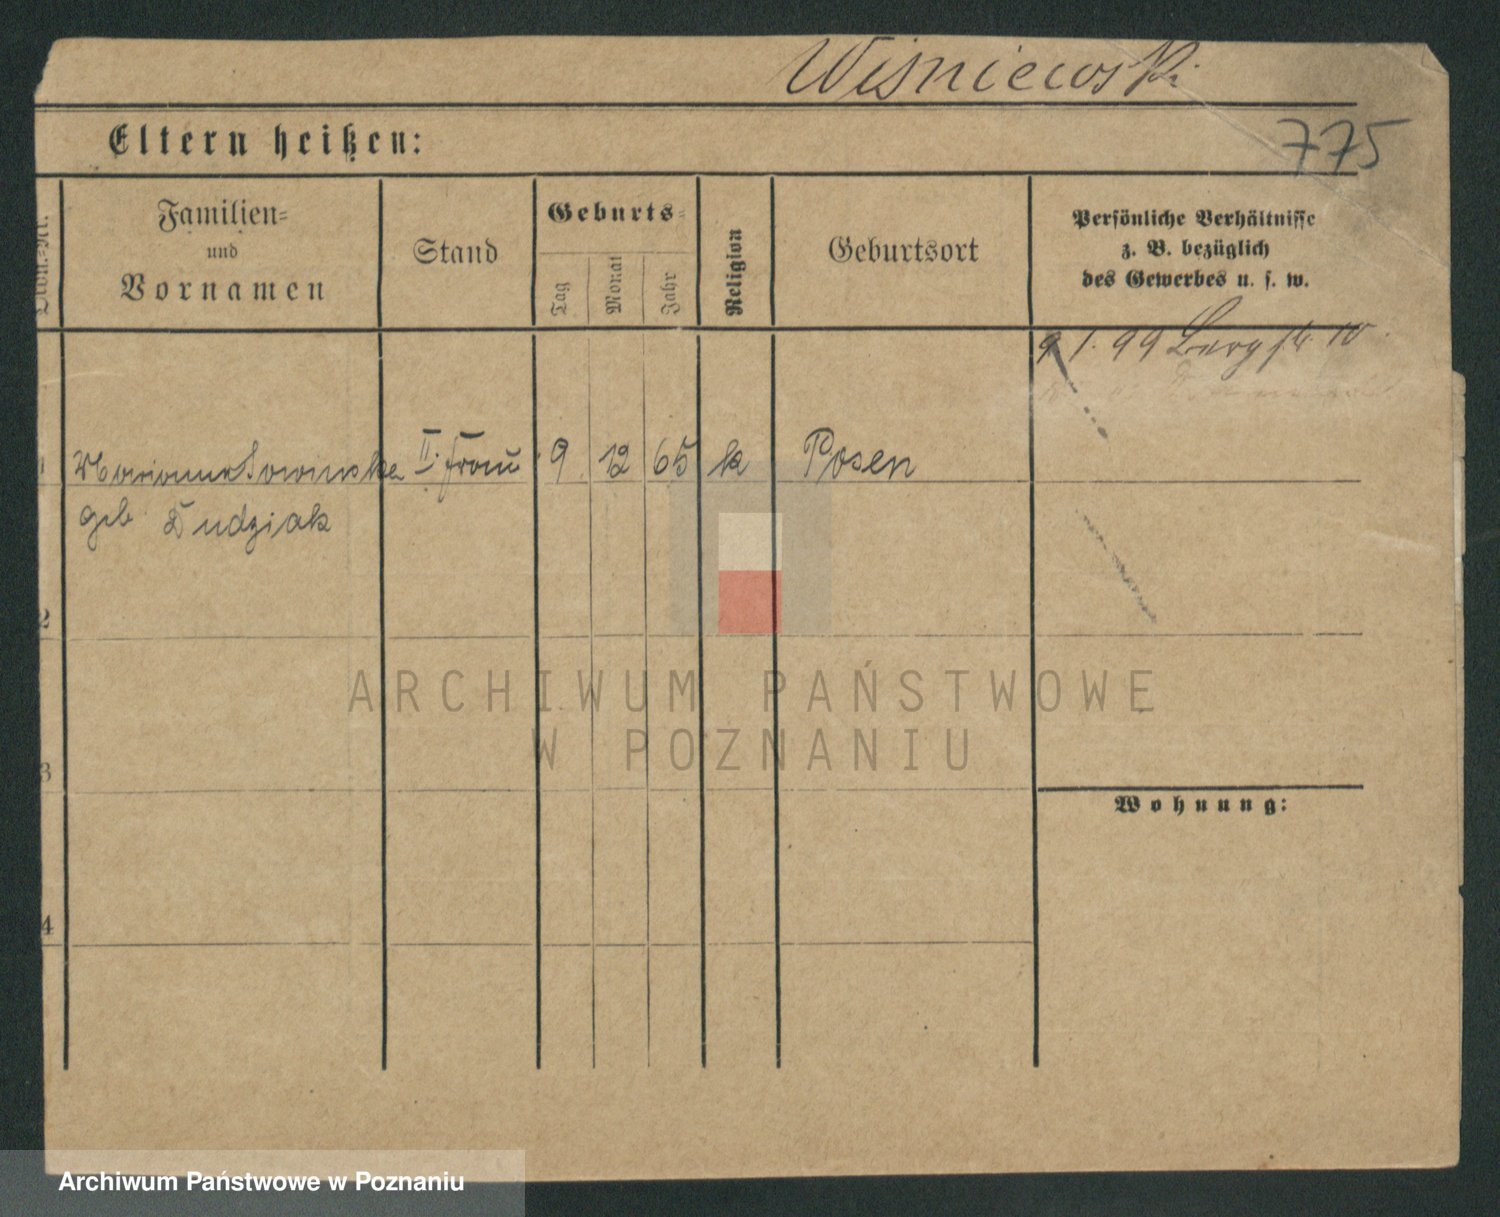 Wiśniewski
775
Eltern heißen:
Familien-
und
Vornamen
Stand
Geburts-
Tag
Monat
Jahr
Religion
Geburtsort
Persönliche Verhältnisse
z. B. bezüglich
des Gewerbes u. s. w.
9 1. 99 Bergstr. 10
1 Marianna Sowinska II. Frau 9 12 65 k Posen
geb Dudziak
2
3
Wohnung:
4
ARCHIWUM PAŃSTWOWE
W POZNANIU
Archiwum Państwowe w Poznaniu